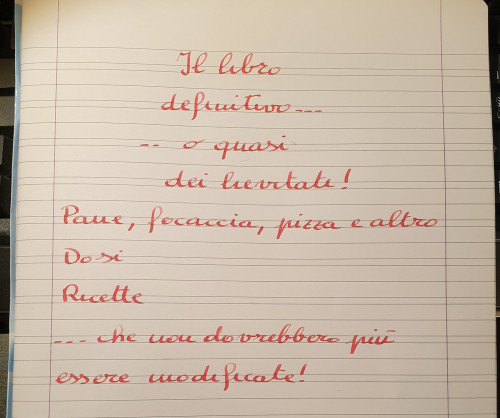 Il libro
definitivo---
-- o quasi
dei lievitati!
Pane, focaccia, pizza e altro
Dosi
Ricette
--- che non dovrebbero più
essere modificate!